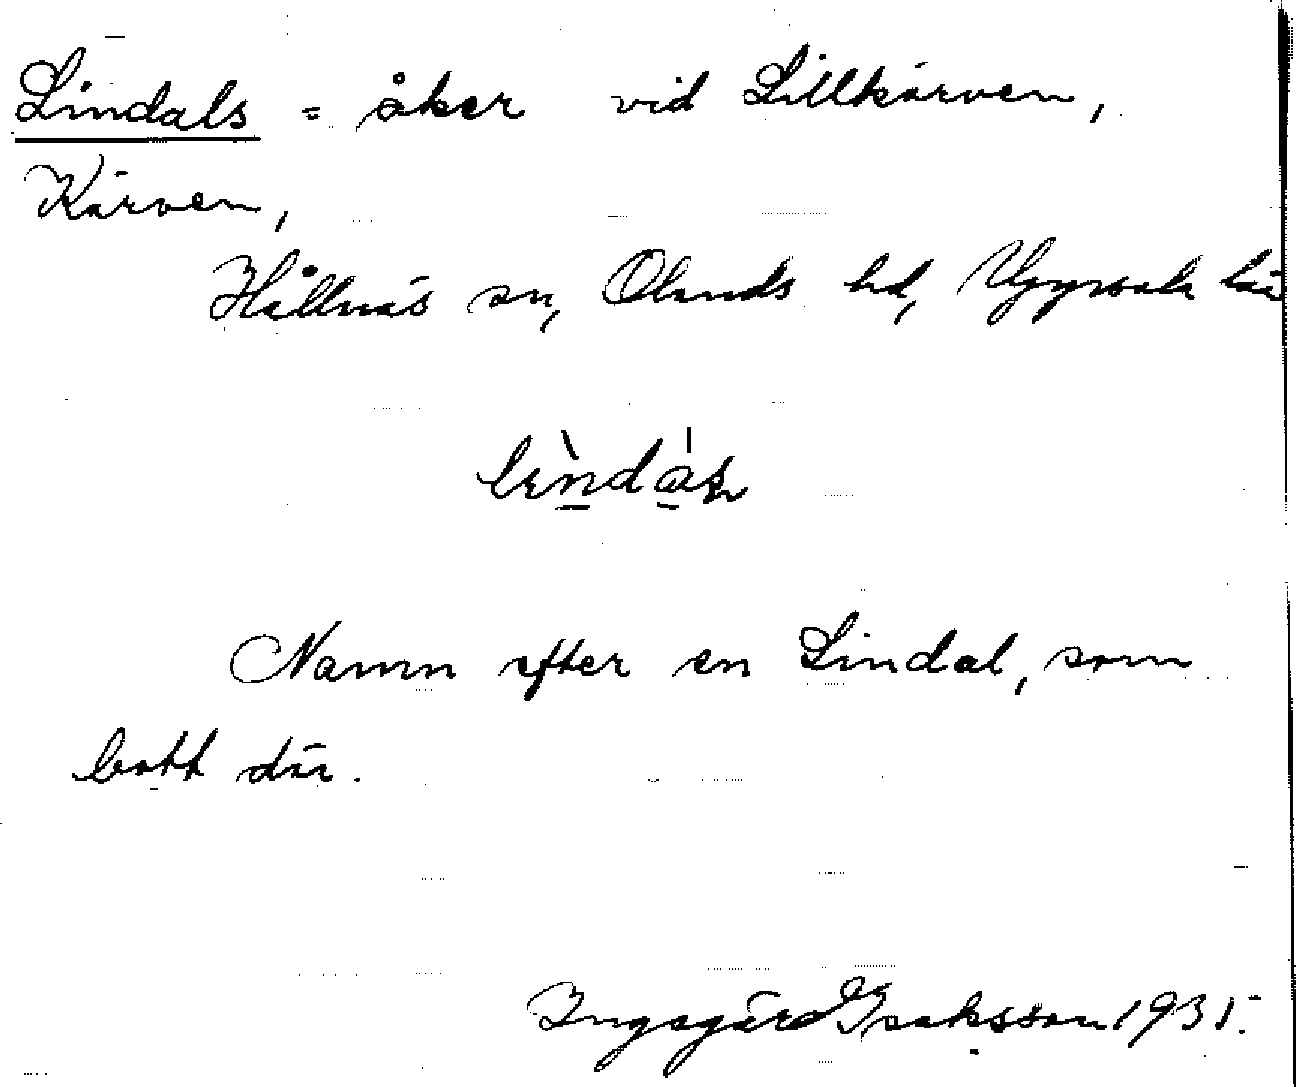 Lindals = åker vid Lillkärven,
Kärven,
Hållnäs sn, Olands hd, Uppsala län
Namn efter en Lindal, som
bott där.
Ingegärd Isaksson 1935.